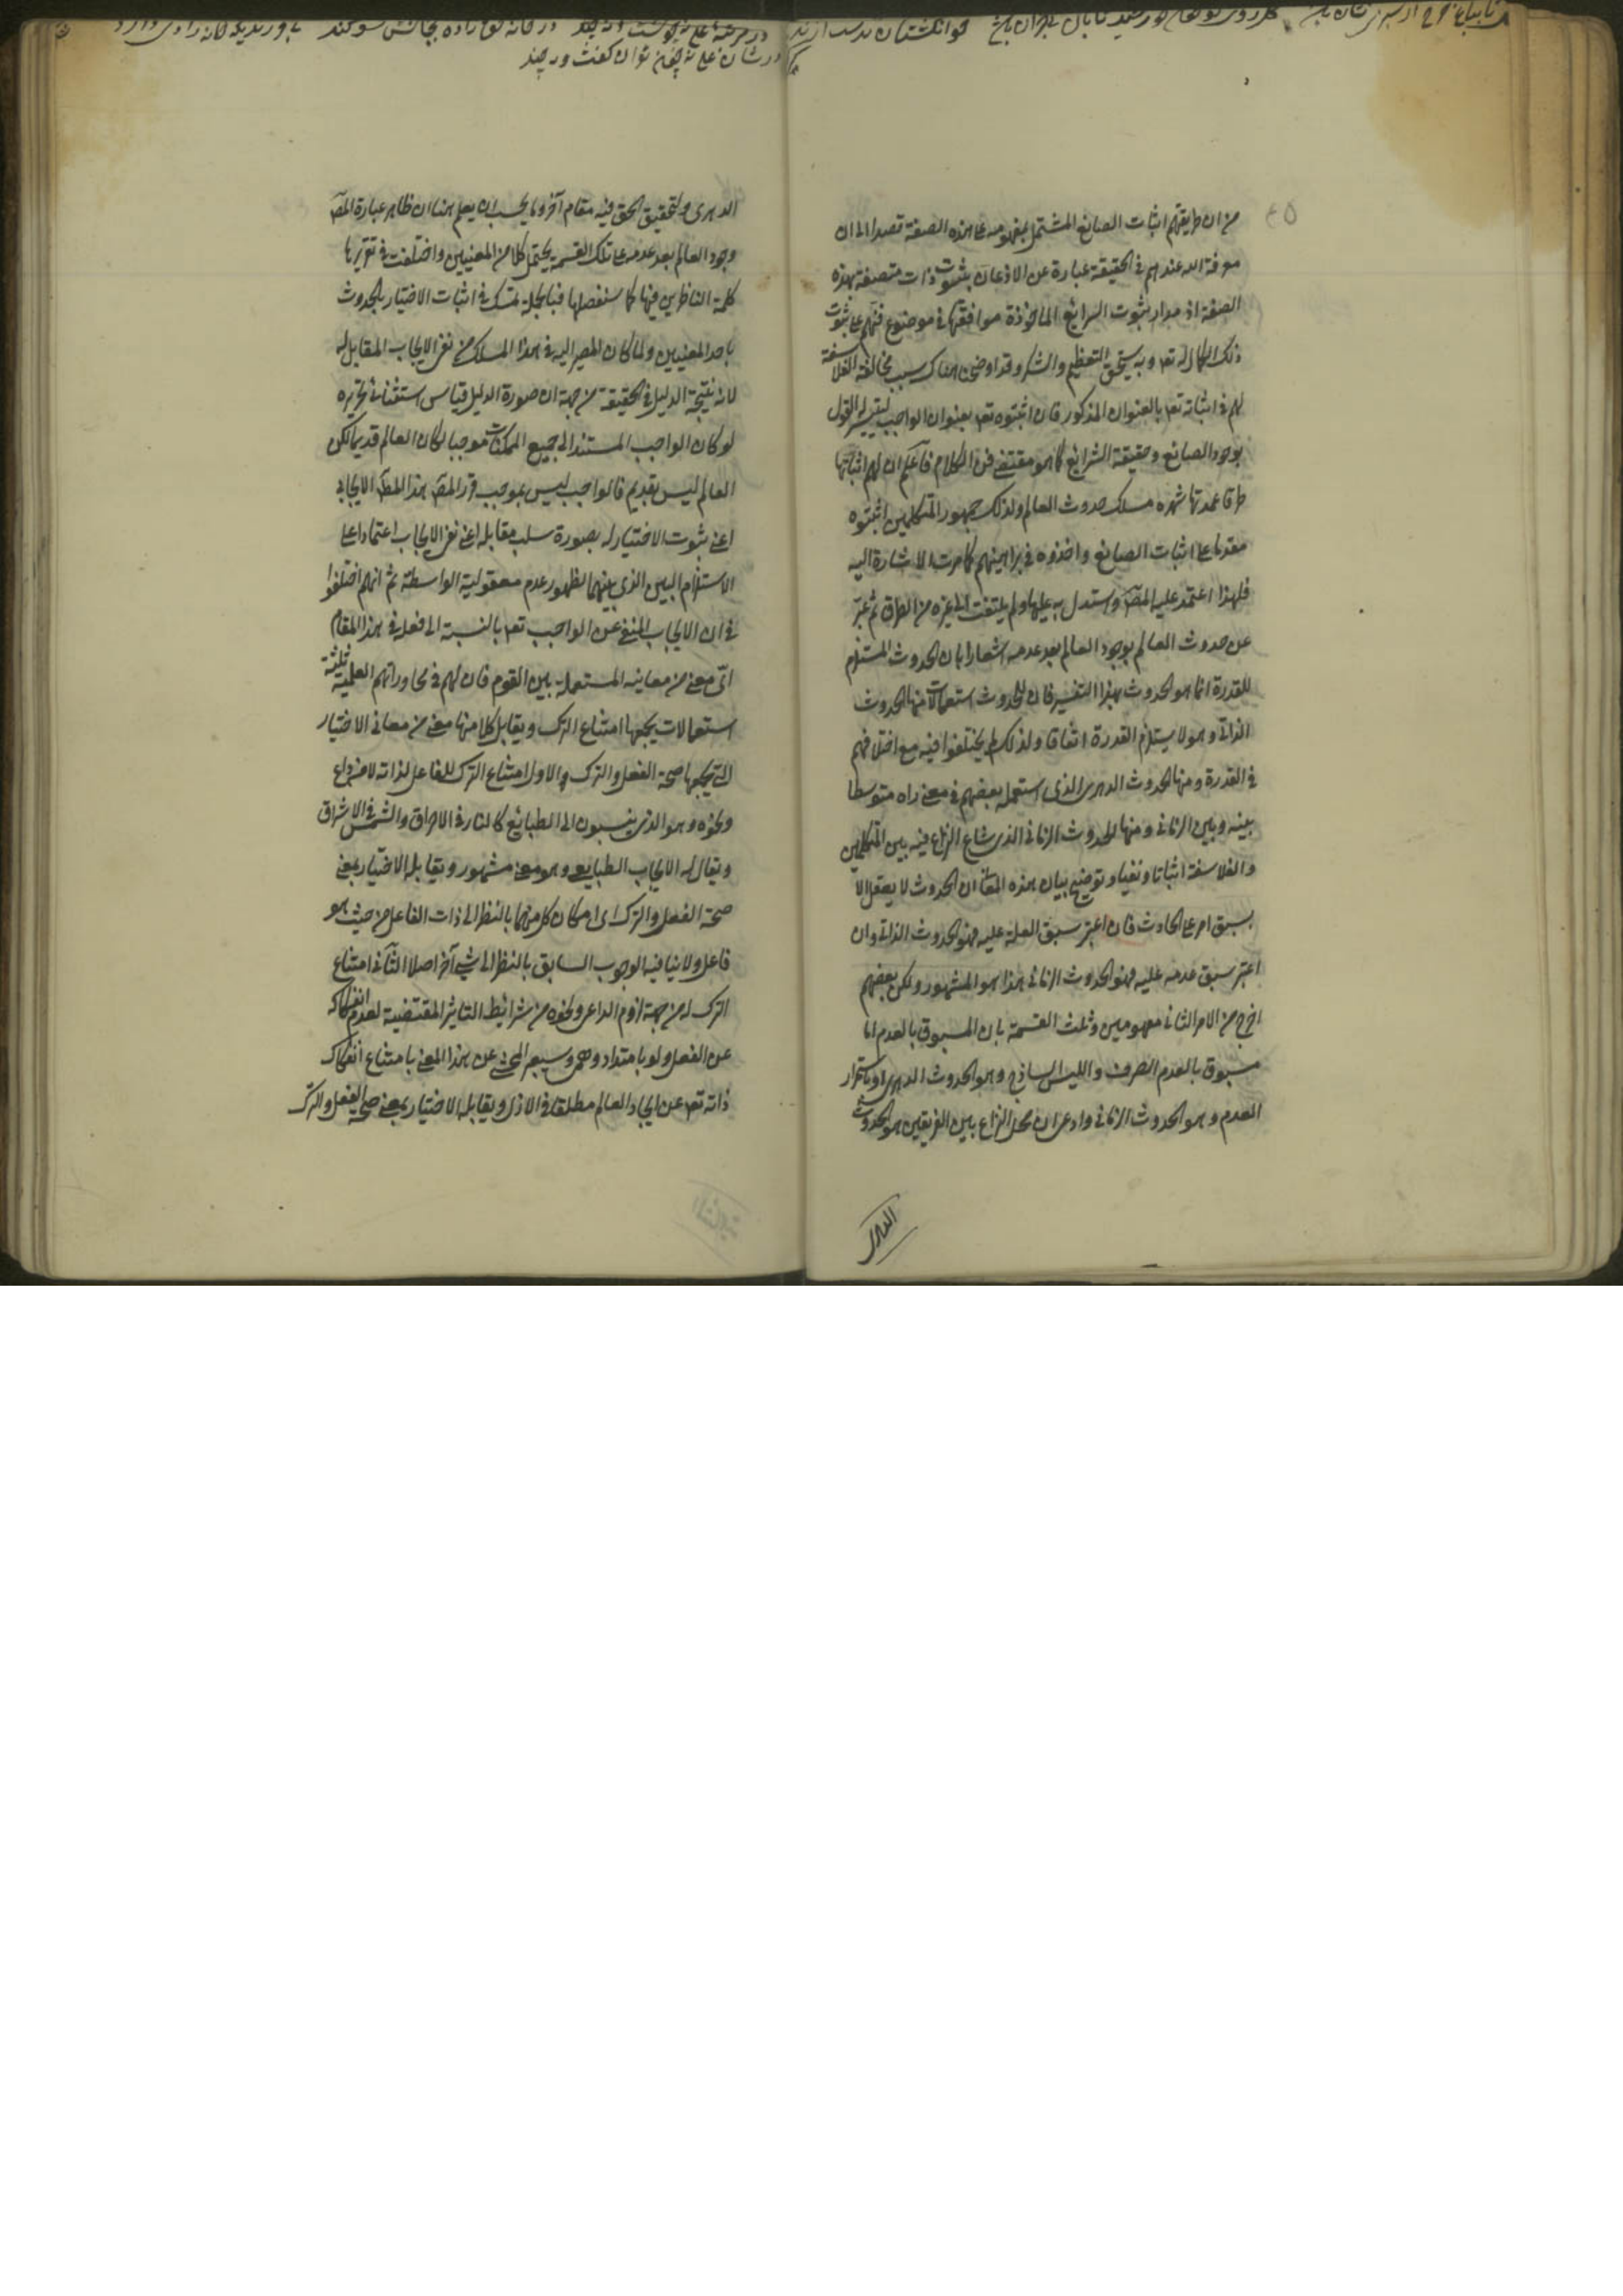 من ان طريقتهم اثبات الصانع المشتمل بمفهومه على هذه الصفة قصدا الى ان
معرفة الله عندهم في الحقيقة عبارة عن الاذعان بثبوت ذات متصفة بهذه
الصفة اذ مدار ثبوت الشرائع الماخوذة موافقتها في موضوع فنهم على ثبوت
ذلك الكمال له تعه وبه يستحق التعظيم والشكر وقد اوضحنا هناك سبب مخالفة الفلاسفة
لهم في اثباته تعه بالعنوان المذكور فان اثبتوه تعه بعنوان الواجب ليتيسر القول
بوجود الصانع وحقيقة الشرائع كما هو مقتضى فن الكلام فاعلم ان لهم في اثباتها
طرقا عمدتها شهرة مسلك حدوث العالم ولذلك جمهور المتكلمين اثبتوه
مقدما على اثبات الصانع واخذوه في براهينهم كما مرت الاشارة اليه
فلهذا اعتمد عليه المصـ واستدل به عليها ولم يلتفت الى غيره من الطرق ثم عبر
عن حدوث العالم بوجود العالم بعد عدمه اشعارا بان الحدوث المستلزم
للقدرة انما هو الحدوث بهذا التفسير فان للحدوث استعمالات منها الحدوث
الذاتي وهو لا يستلزم القدرة اتفاقا ولذلك لم يختلفوا فيه مع اختلافهم
في القدرة ومنها الحدوث الدهري الذي استعمله بعضهم في معنى راه متوسطا
بينه وبين الزماني ومنها الحدوث الزماني الذي شاع النزاع فيه بين المتكلمين
والفلاسفة اثباتا ونفيا وتوضيح بيان هذه المعاني ان الحدوث لا يعقل الا
بسبق امر على الحادث فان اعتبر سبق العلة عليه فهو الحدوث الذاتي وان
اعتبر سبق عدمه عليه فهو الحدوث الزماني هذا هو المشهور ولكن بعضهم
اخرج من الامر الثاني مفهومين وثلث القسمة بان المسبوق بالعدم اما
مسبوق بالعدم الصرف والليس الساذج وهو الحدوث الدهري او باستمرار
العدم وهو الحدوث الزماني وادعى ان محل النزاع بين الفريقين هو الحدوث
الدهري ولتحقيق الحق فيه مقام آخر وما يجب ان يعلم هنا ان ظاهر عبارة المصـ
وجود العالم بعد عدمه على تلك القسمة يحتمل كلا من المعنيين واختلفت في تقريرها
كلمة الناظرين فيها كما سنفصلها فبالجملة تمسك في اثبات الاختيار بالحدوث
باحد المعنيين ولما كان المصير اليه في هذا المسلك من نفي الايجاب المقابل له
لانه نتيجة الدليل في الحقيقة من جهة ان صورة الدليل قياس استثنائي تحريره
لو كان الواجب المستند اليه جميع الممكنات موجبا لكان العالم قديما لكن
العالم ليس بقديم فالواجب ليس بموجب قرر المصـ هذا المطـ الايجابي
اعني ثبوت الاختيار له بصورة سلب مقابله اعني نفي الايجاب اعتمادا على
الاستلزام البين الذي بينهما لظهور عدم معقولية الواسطة ثم انهم اختلفوا
في ان الايجاب المنفي عن الواجب تعه بالنسبة الى فعله في هذا المقام
اي معنى من معانيه المستعملة بين القوم فان لهم في محاوراتهم العلمية ثلثة
استعمالات يجمعها امتناع الترك ويقابل كلا منها معنى من معاني الاختيار
التي يجمعها صحة الفعل والترك الاول امتناع الترك للفاعل لذاته لا من داع
ونحوه وهو الذي ينسبون الى الطبائع كالنار في الاحراق والشمس في الاشراق
ويقال له الايجاب الطبايعي وهو معنى مشهور ويقابله الاختيار بمعنى
صحة الفعل والترك اي امكان كل منهما بالنظر الى ذات الفاعل من حيث هو
فاعل ولا ينافيه الوجوب السابق بالنظر الى شيء آخر اصلا الثاني امتناع
الترك له من جهة لزوم الداعي ونحوه من شرائط التاثير المقتضية لعدم انفكاكه
عن الفعل ولو بامتداد وهمي وسيعبر المحشي عن هذا المعنى بامتناع انفكاك
ذاته تعه عن ايجاد العالم مطلقا في الازل ويقابله الاختيار بمعنى صحة الفعل والترك